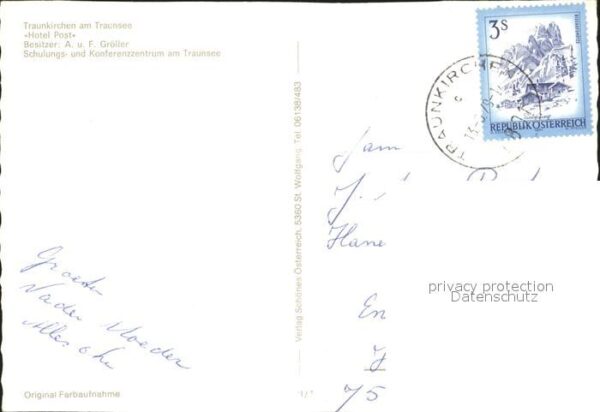 Traunkirchen am Traunsee
«Hotel Post»
Besitzer: A. u. F. Gröller
Schulungs- und Konferenzzentrum am Traunsee
3s
REPUBLIK ÖSTERREICH
TRAUNKIRCHEN
Verlag Schönes Österreich, 5360 St. Wolfgang, Tel. 06138/483
Fam
J.
Hane
En
75
Groeten
Vader Moeder
Alles ok
privacy protection
Datenschutz
Original Farbaufnahme